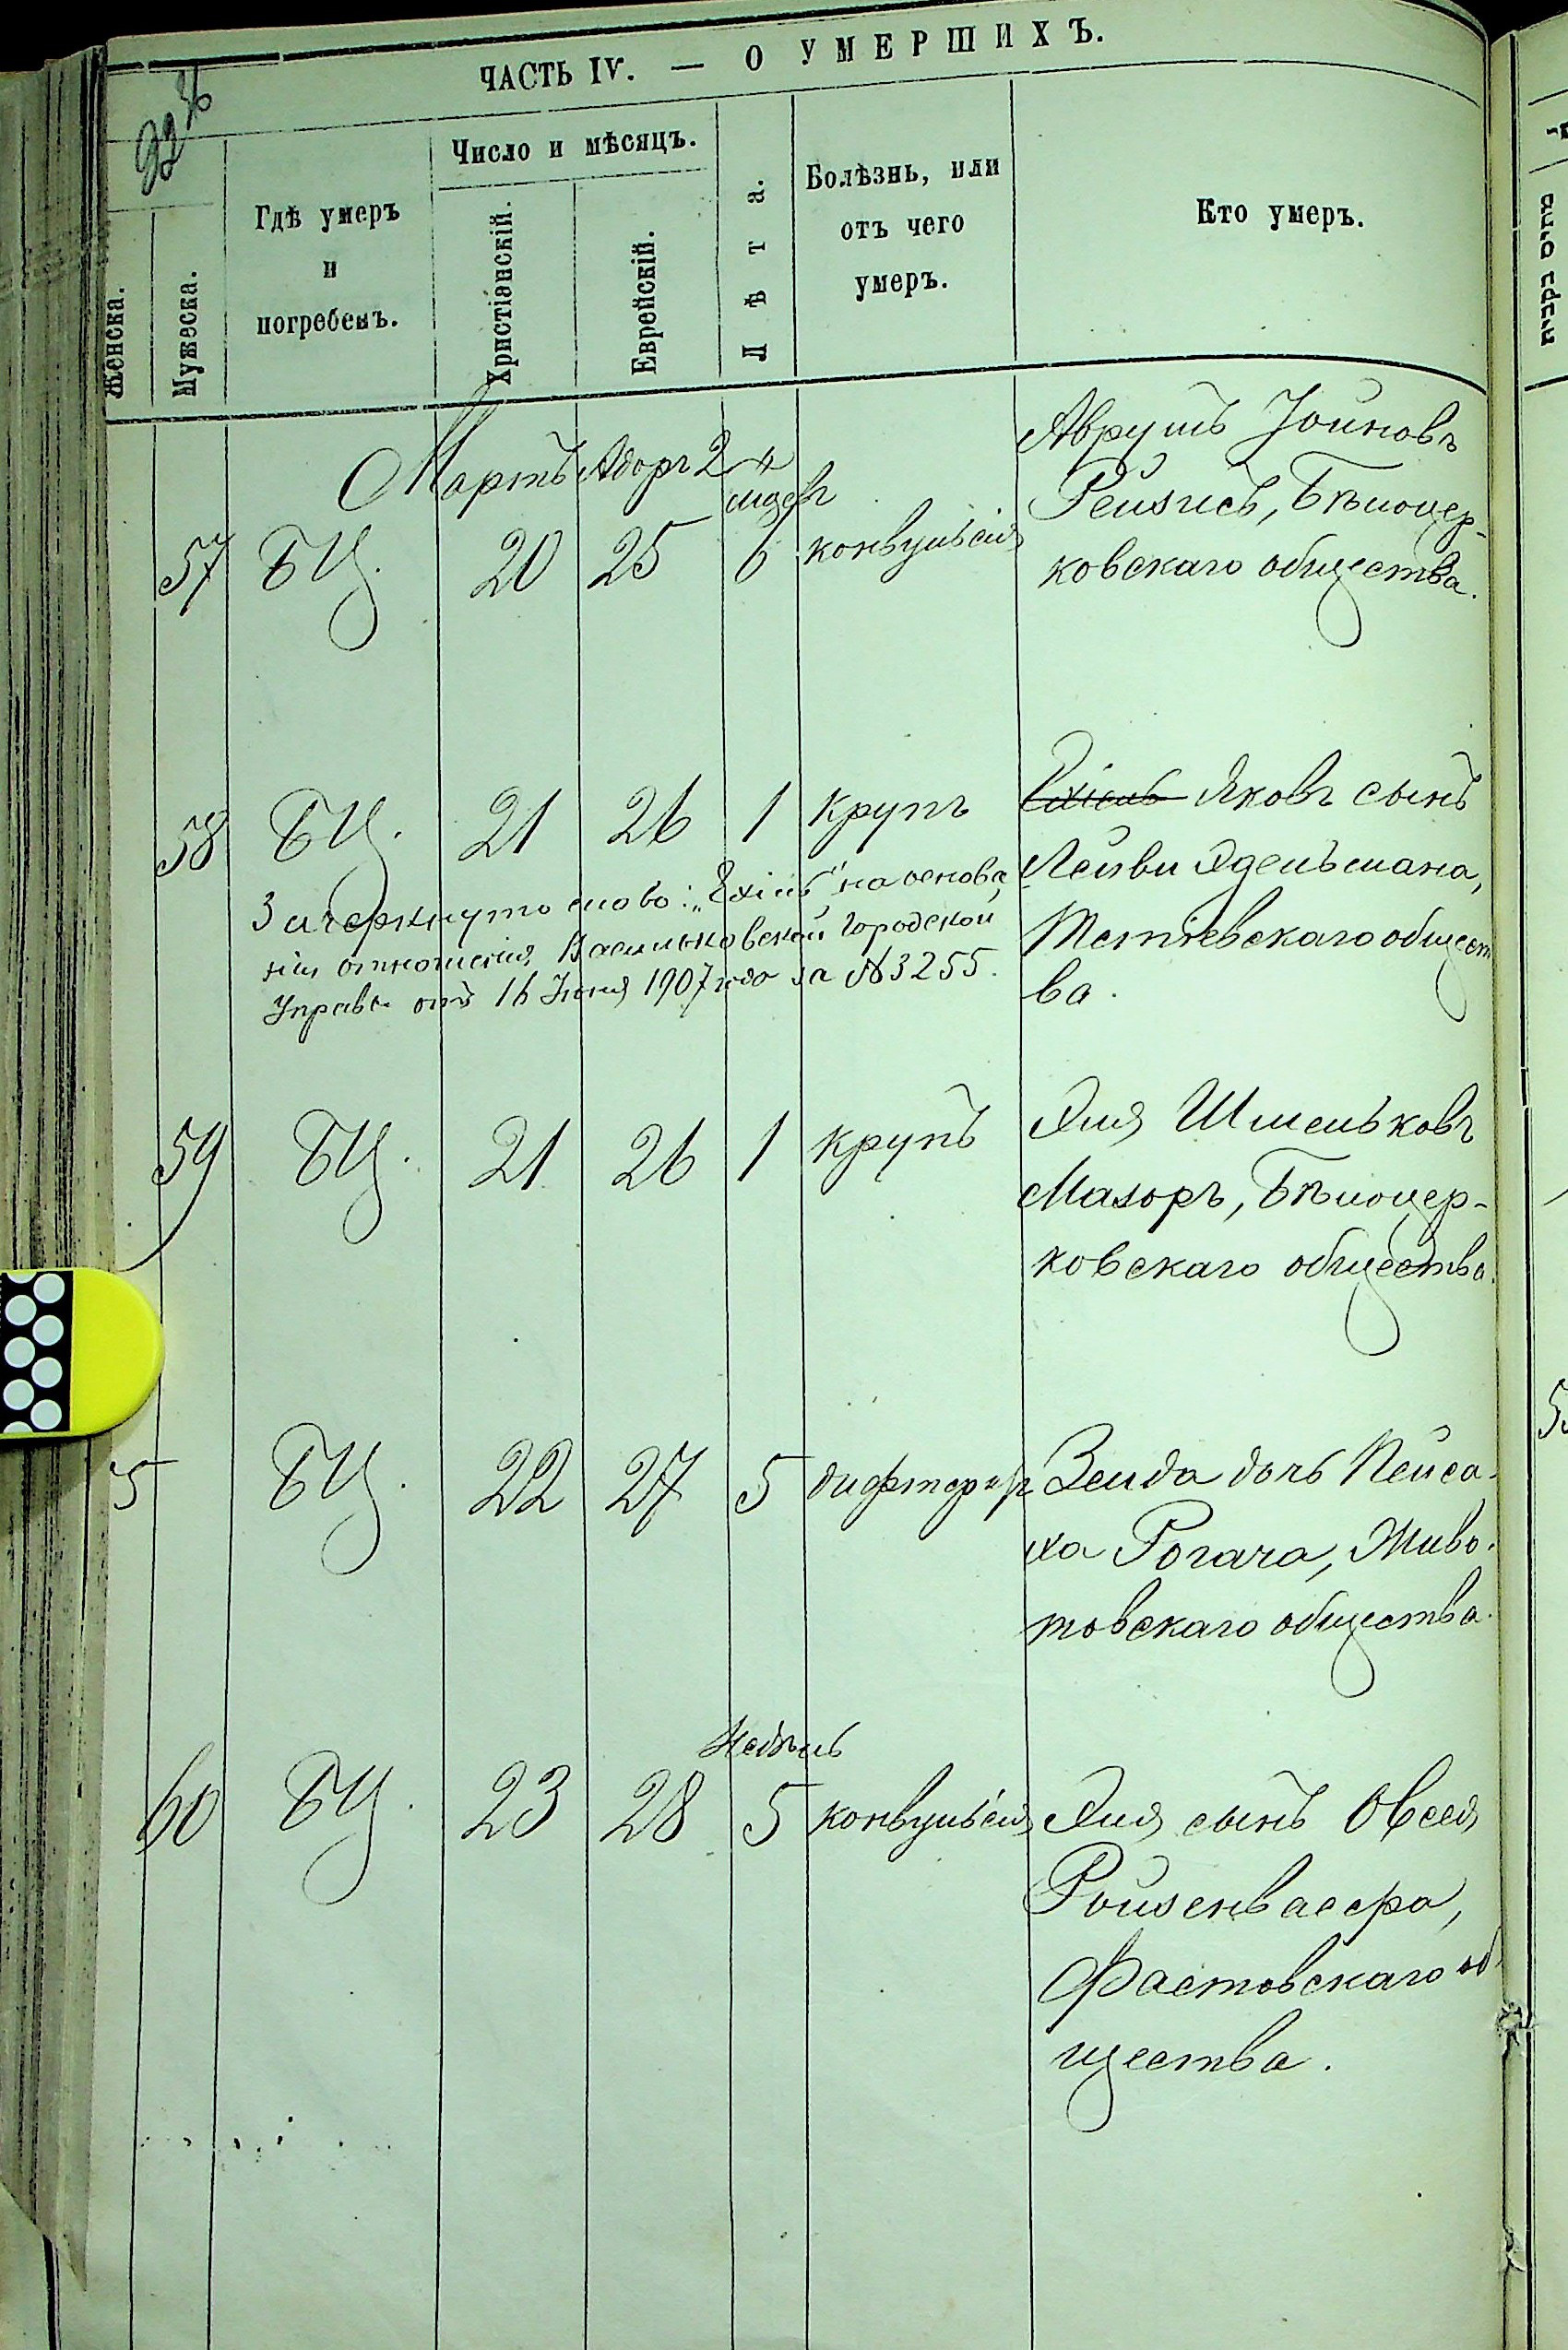 ЧАСТЬ IV. — О УМЕРШИХЪ.
Женска.
Мужеска.
Гдѣ умеръ
и
погребенъ.
Число и мѣсяцъ.
Христіанскій.
Еврейскій.
Лѣта.
Болѣзнь, или
отъ чего
умеръ.
Кто умеръ.
Мартъ Адоръ 2й
57 БЦ. 20 25 6 конвульсія
Аврумъ Іойновъ
Рейзисъ, Бѣлоцер-
ковскаго общества.
58 БЦ. 21 26 1 крупъ
Ехіель Яковъ сынъ
Лейви Эдельмана,
Тетіевскаго общест
ва.
Зачеркнуто слово: „Ехіель" на основа
ніи отношенія Васильковской Городской
Управы отъ 16 Іюня 1907 года за №3255.
59 БЦ. 21 26 1 крупъ
Эля Шмельковъ
Мазоръ, Бѣлоцер-
ковскаго общества.
5 БЦ. 22 27 5 дифтеритъ
Зелда дочь Пейса-
ха Рогача, Живо-
товскаго общества.
Недѣль
60 БЦ. 23 28 5 конвульсія
Эля сынъ Овсея
Ройзенвассра,
Фастовскаго об
щества.